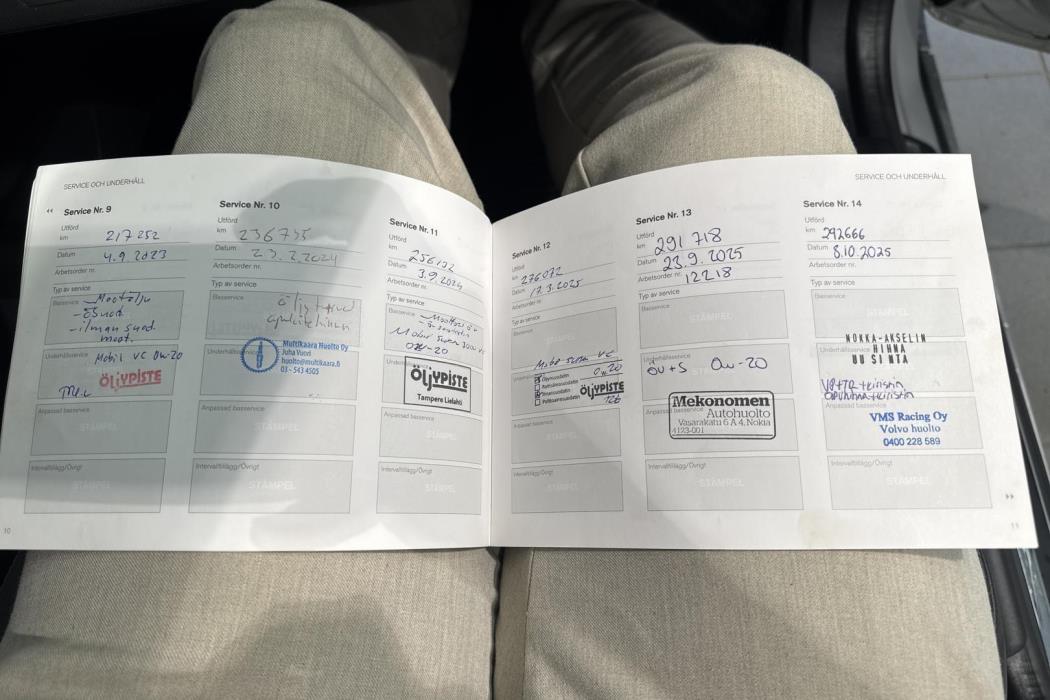 SERVICE OCH UNDERHÅLL
Service Nr. 9
Utförd
km 217 252
Datum 4.9.2023
Arbetsorder nr.
Typ av service
Basservice Moottoriöljy
- ilman suod.
Underhållsservice Mobil VC 0W-20
ÖLJYPISTE
Anpassad basservice
STÄMPEL
Intervalltillägg/Övrigt
STÄMPEL
10
Service Nr. 10
Utförd
km 236735
Datum 23.2.2024
Arbetsorder nr.
Typ av service
Basservice
Underhållsservice
Multikaara Huolto Oy
Juha Vuori
huolto@multikaara.fi
03 - 543 4505
Anpassad basservice
STÄMPEL
Intervalltillägg/Övrigt
STÄMPEL
Service Nr. 11
Utförd
km 256132
Datum 3.9.2024
Arbetsorder nr.
Typ av service
Basservice
Mobil Super 3000 VC
0W-20
ÖLJYPISTE
Tampere Lielahti
Anpassad basservice
STÄMPEL
Intervalltillägg/Övrigt
STÄMPEL
SERVICE OCH UNDERHÅLL
Service Nr. 12
Utförd
km 276072
Datum 17.3.2025
Arbetsorder nr.
Typ av service
Basservice
STÄMPEL
0W20
ÖLJYPISTE
126
Anpassad basservice
STÄMPEL
Intervalltillägg/Övrigt
STÄMPEL
Service Nr. 13
Utförd
km 291 718
Datum 23.9.2025
Arbetsorder nr. 12218
Typ av service
Basservice
STÄMPEL
Underhållsservice
öv+S 0W-20
Anpassad basservice
Mekonomen
Autohuolto
Vasarakatu 6 A 4, Nokia
4123-001
Intervalltillägg/Övrigt
STÄMPEL
Service Nr. 14
Utförd
km 292666
Datum 8.10.2025
Arbetsorder nr.
Typ av service
Basservice
STÄMPEL
Underhållsservice
NOKKA-AKSELIN
HIHNA
UUSINTA
Anpassad basservice
VMS Racing Oy
Volvo huolto
0400 228 589
Intervalltillägg/Övrigt
STÄMPEL
11